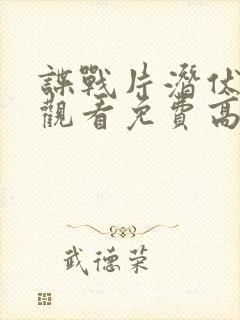 諜戰片潛伏
觀看免費高
武德荣